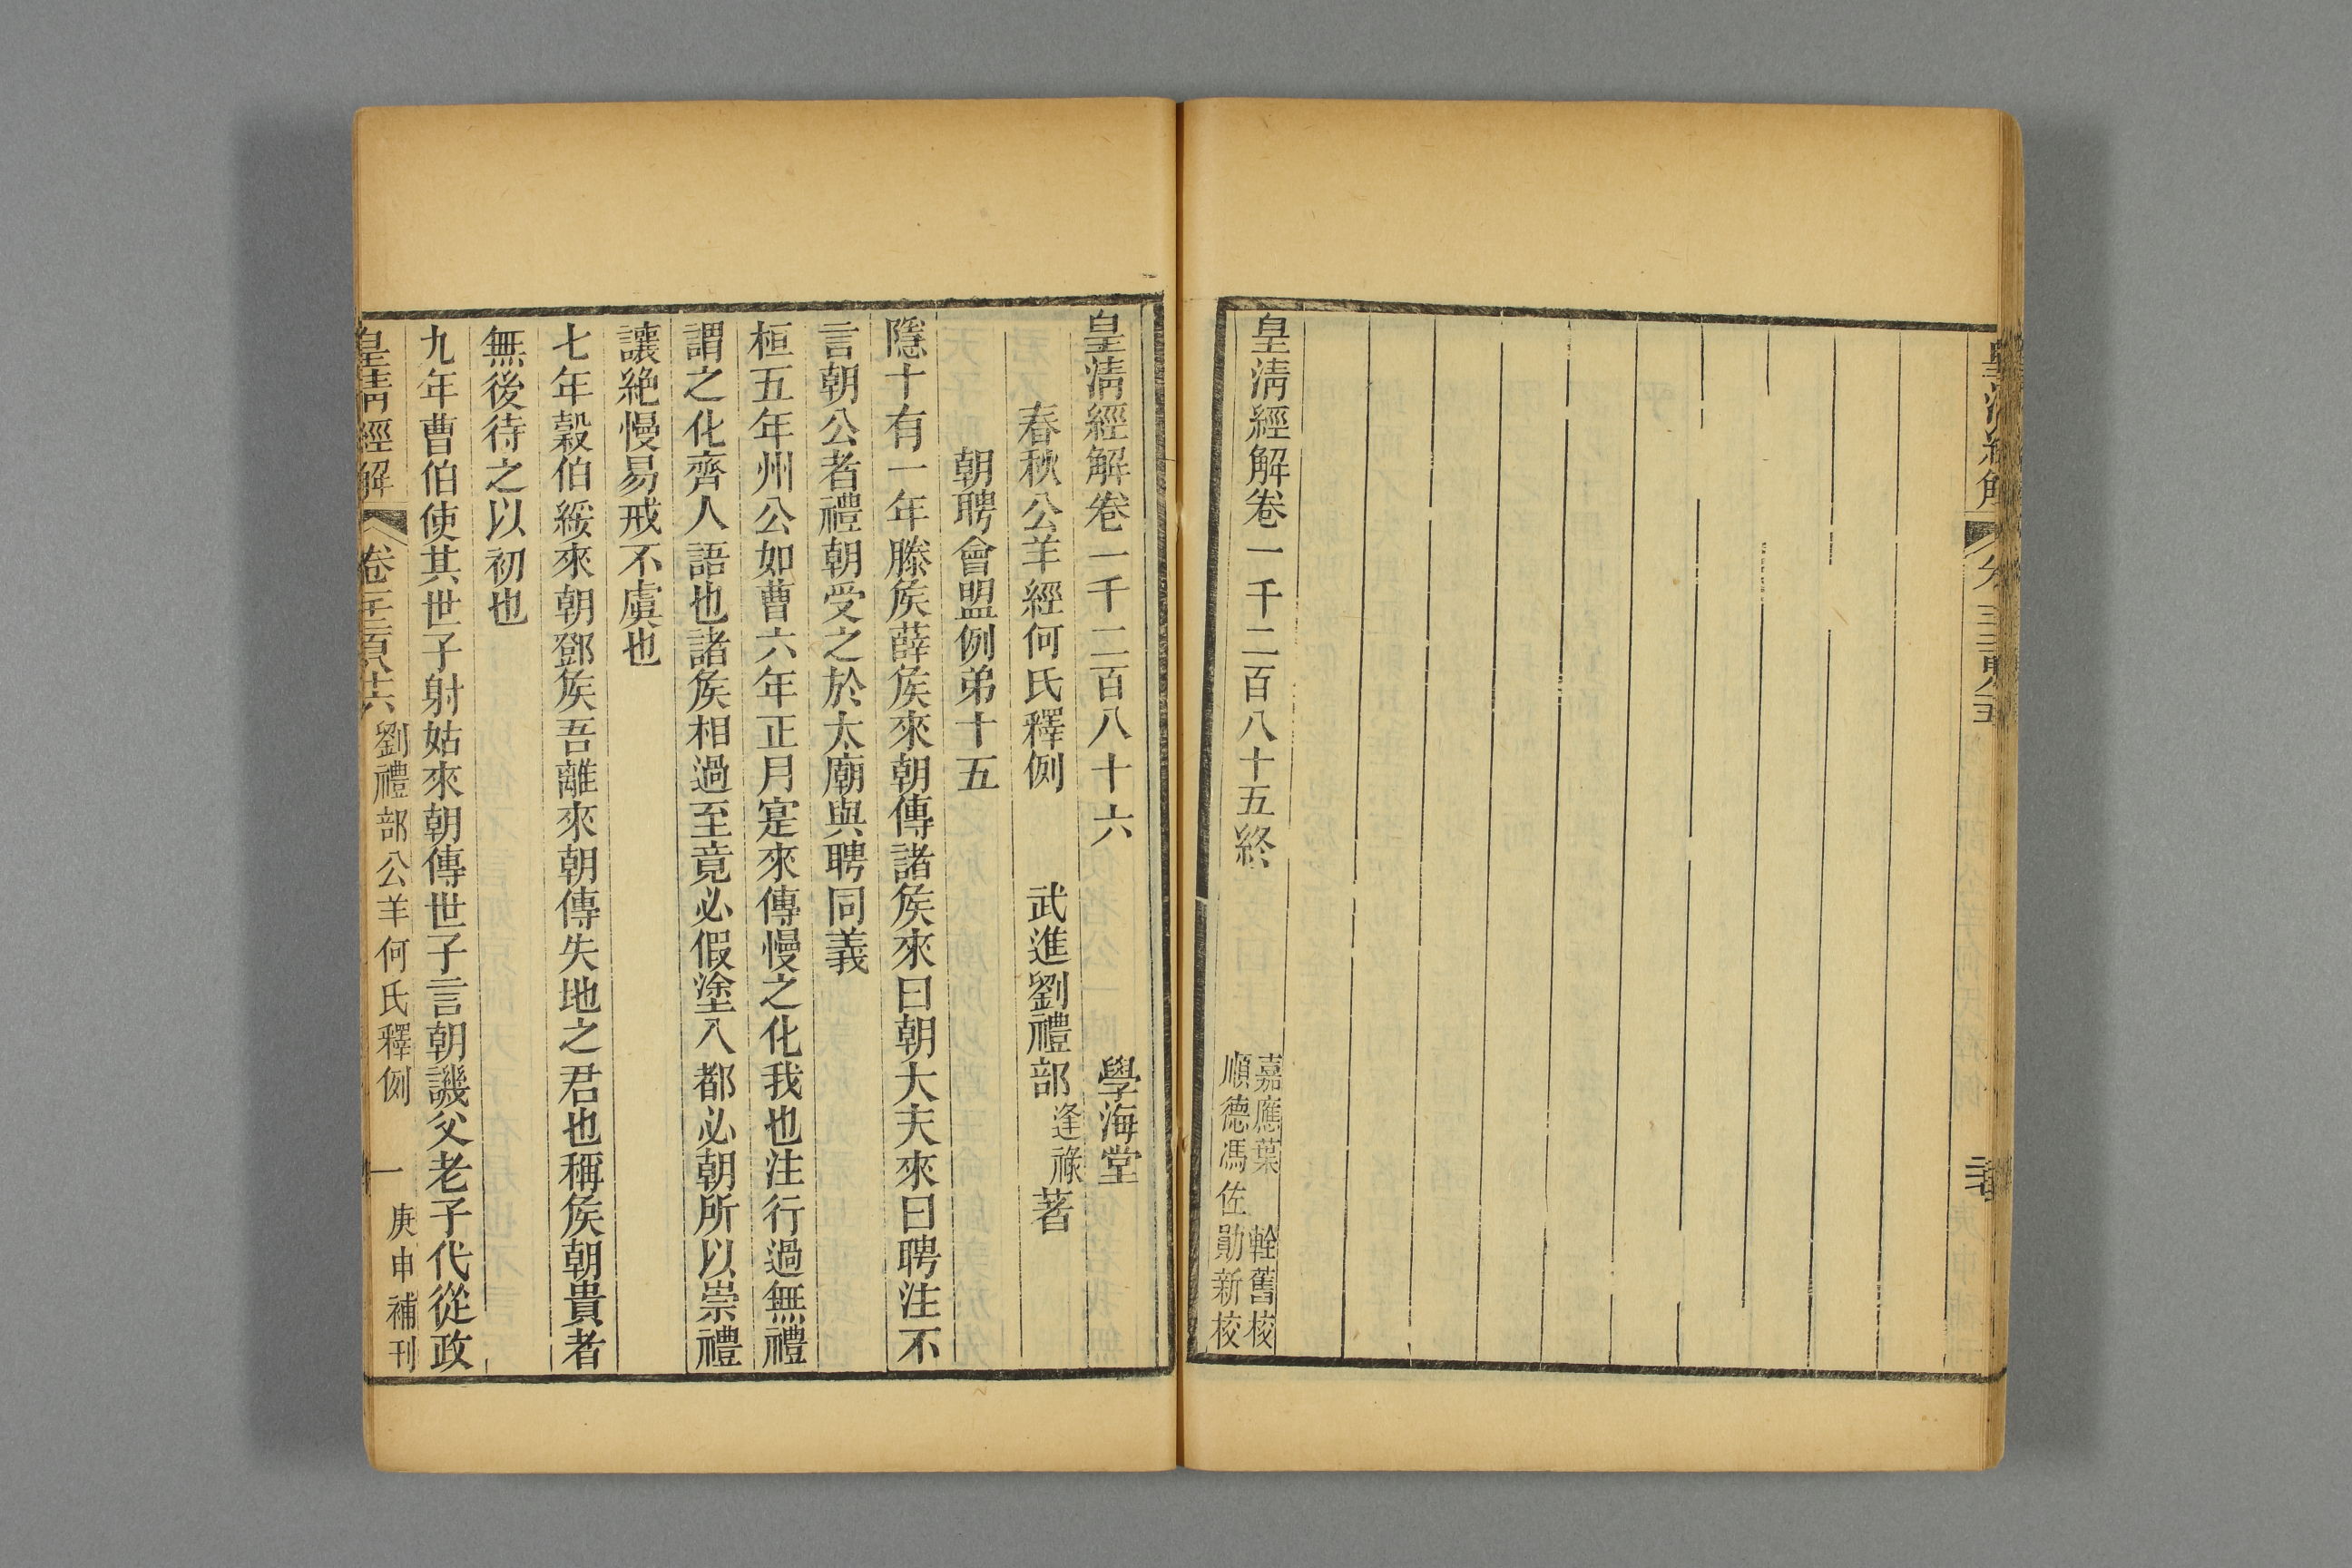 皇清經解卷一千二百八十五終
嘉應葉 輇舊校
順德馮佐勛新校
皇清經解卷一千二百八十六 學海堂
春秋公羊經何氏釋例 武進劉禮部逢祿著
朝聘會盟例弟十五
隱十有一年滕矦薛矦來朝傳諸矦來曰朝大夫來曰聘注不
言朝公者禮朝受之於太廟與聘同義
桓五年州公如曹六年正月寔來傳慢之化我也注行過無禮
謂之化齊人語也諸矦相過至竟必假塗入都必朝所以崇禮
讓絶慢易戒不虞也
七年穀伯綏來朝鄧矦吾離來朝傳失地之君也稱矦朝貴者
無後待之以初也
九年曹伯使其世子射姑來朝傳世子言朝譏父老子代從政
皇清經解 卷千二百八十六 劉禮部公羊何氏釋例 一 庚申補刊